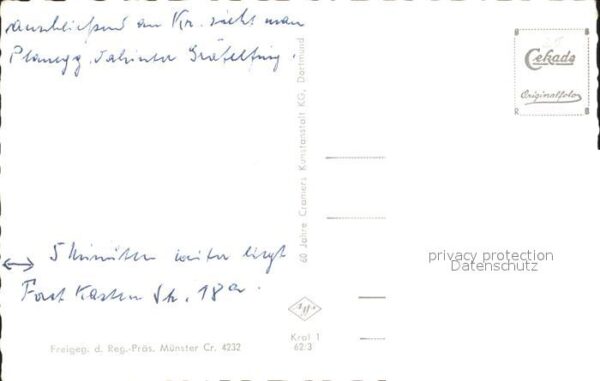 anschließend an Kr. sieht man
Planegg, dahinter Gräfelfing.
60 Jahre Cramers Kunstanstalt KG, Dortmund
Cekade
Originalfoto
R
privacy protection
Datenschutz
5 Minuten weiter liegt
Forst Kasten Str. 18a.
Agfa
Kral 1
62:3
Freigeg. d. Reg.-Präs. Münster Cr. 4232